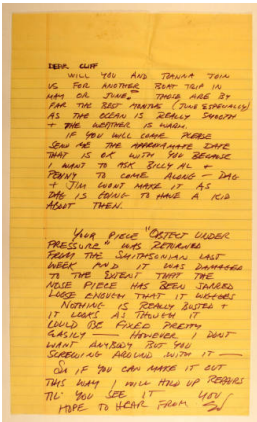 DEAR CLIFF
WILL YOU AND JOANNA JOIN
US FOR ANOTHER BOAT TRIP IN
MAY OR JUNE. THOSE ARE BY
FAR THE BEST MONTHS (JUNE ESPECIALLY)
AS THE OCEAN IS REALLY SMOOTH
+ THE WEATHER IS WARM.
IF YOU WILL COME PLEASE
SEND ME THE APPROXAMATE DATE
THAT IS OK WITH YOU BECAUSE
I WANT TO ASK BILLY AL +
PENNY TO COME ALONG — DAG
+ JIM WONT MAKE IT AS
DAG IS GOING TO HAVE A KID
ABOUT THEN.
YOUR PIECE "OBJECT UNDER
PRESSURE" WAS RETURNED
FROM THE SMITHSONIAN LAST
WEEK AND IT WAS DAMAGED
TO THE EXTENT THAT THE
NOSE PIECE HAS BEEN JARRED
LOOSE ENOUGH THAT IT WIGGLES
NOTHING IS REALLY BUSTED +
IT LOOKS AS THOUGH IT
COULD BE FIXED PRETTY
EASILY — HOWEVER I DONT
WANT ANYBODY BUT YOU
SCREWING AROUND WITH IT —
SO IF YOU CAN MAKE IT OUT
THIS WAY I WILL HOLD UP REPAIRS
TIL' YOU SEE IT
HOPE TO HEAR FROM YOU
ED